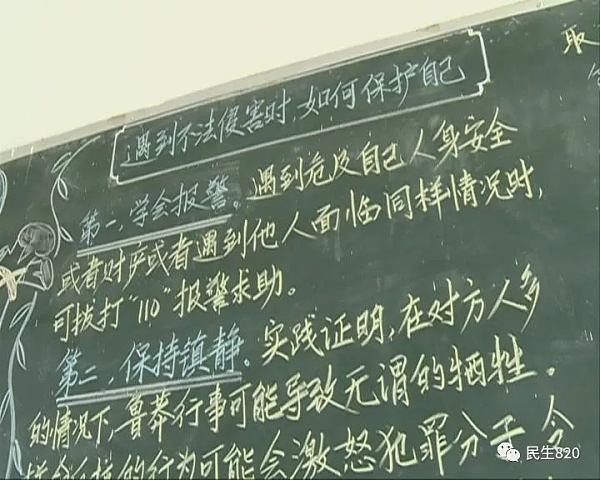 遇到不法侵害时，如何保护自己
第一、学会报警。遇到危及自己人身安全
或者财产或者遇到他人面临同样情况时，
可拨打“110”报警求助。
第二、保持镇静。实践证明，在对方人多
的情况下，鲁莽行事可能导致无谓的牺牲。
的行为可能会激怒犯罪分子
取
民生820